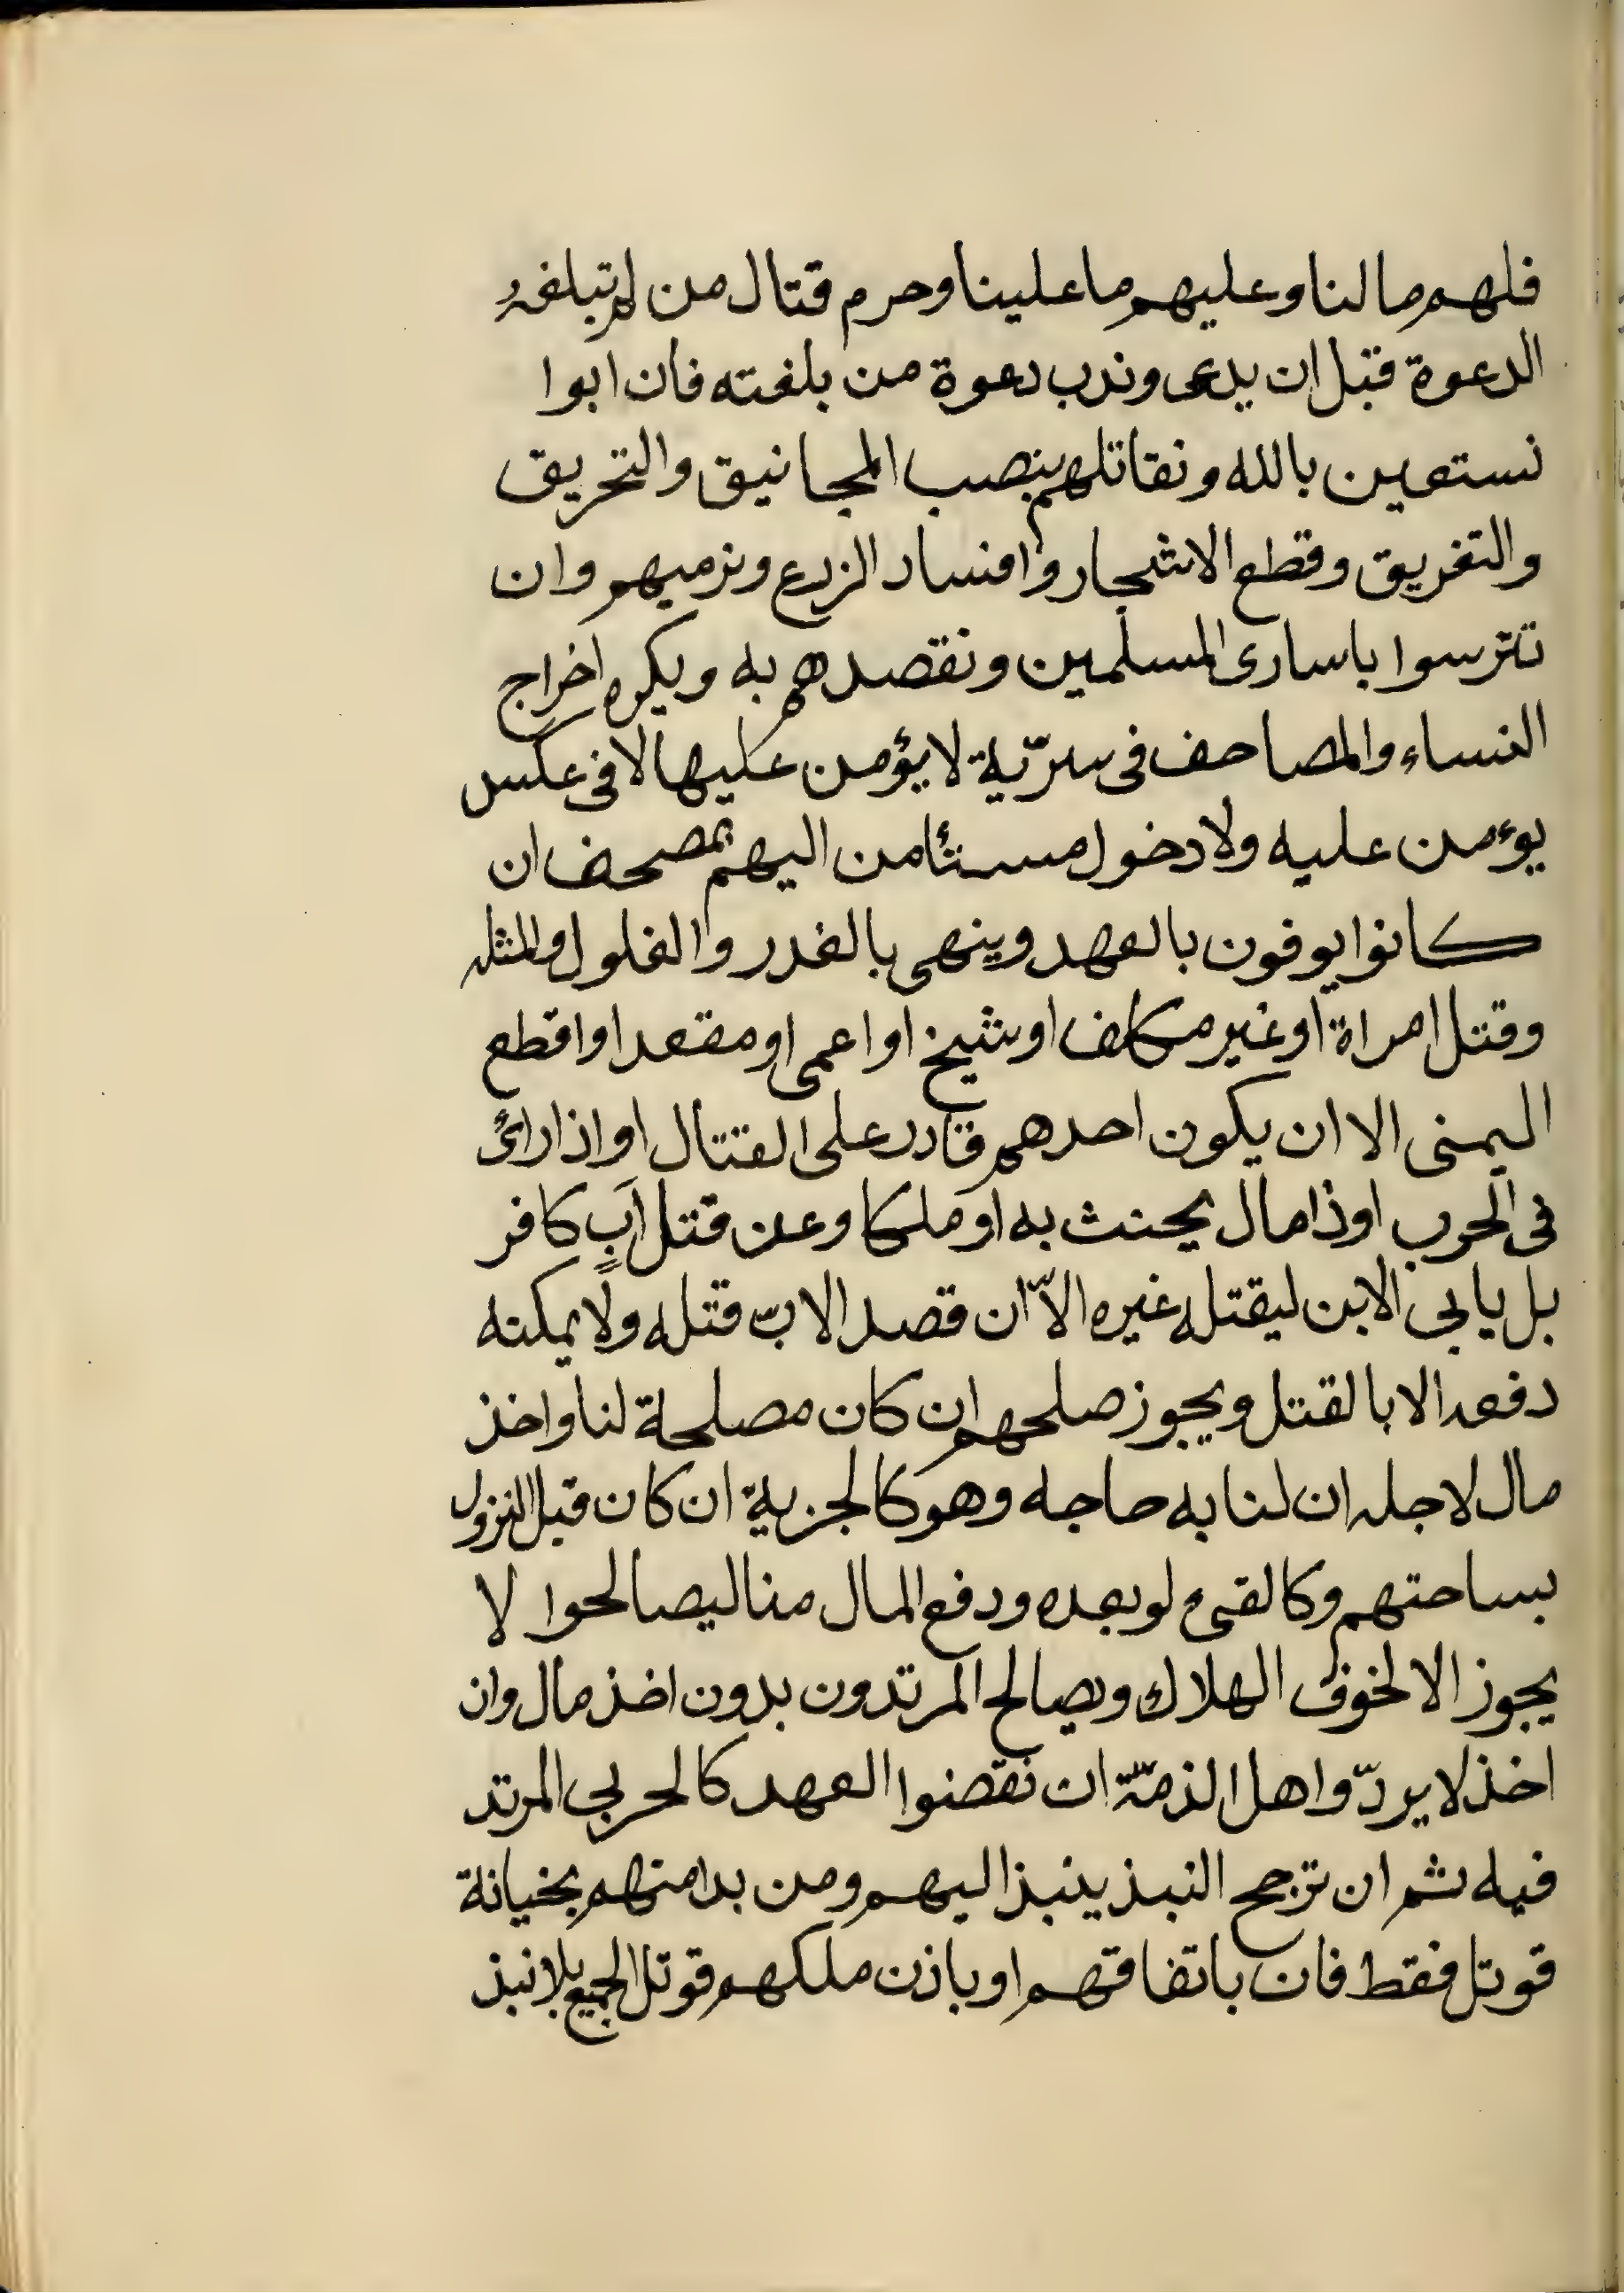 فلهم ما لنا وعليهم ما علينا وحرم قتال من لم تبلغه
الدعوة قبل ان يدعى وندب دعوة من بلغته فان ابوا
نستعين بالله ونقاتلهم بنصب المجانيق والتحريق
والتغريق وقطع الاشجار وافساد الزرع ونرميهم وان
تترسوا باسارى المسلمين ونقصدهم به ويكره اخراج
النساء والمصاحف فى سرّية لا يؤمن عليها لا فى عكس
يوءمن عليه ولا دخول مستئامن اليهم بمصحف ان
كانوا يوفون بالعهد وينهى بالغدر والغلول والمثله
وقتل امراة او غير مكلف او شيخ او اعمى او مقعد او اقطع
اليمنى الا ان يكون احدهم قادر على القتال او اذا رائ
فى الحرب او ذا مال يحنث به او ملكا وعن قتل اَبٍ كافر
بل يابى الابن ليقتله غيره الاّ ان قصد الاب قتله ولا يمكنه
دفعه الا بالقتل ويجوز صلحهم ان كان مصلحة لنا واخذ
مال لاجله ان لنا به حاجه وهو كالجزية ان كان قبل النزول
بساحتهم وكالفىء لو بعده ودفع المال منا ليصالحوا لا
يجوز الا لخوف الهلاك ويصالح المرتدون بدون اخذ مال وان
اخذ لا يردّ واهل الذمّة ان نقضوا العهد كالحربى المرتد
فيه ثم ان ترجح النبذ ينبذ اليهم ومن بدا منهم بخيانة
قوتل فقط فان باتفاقهم او باذن ملكهم قوتل الجميع بلا نبذ